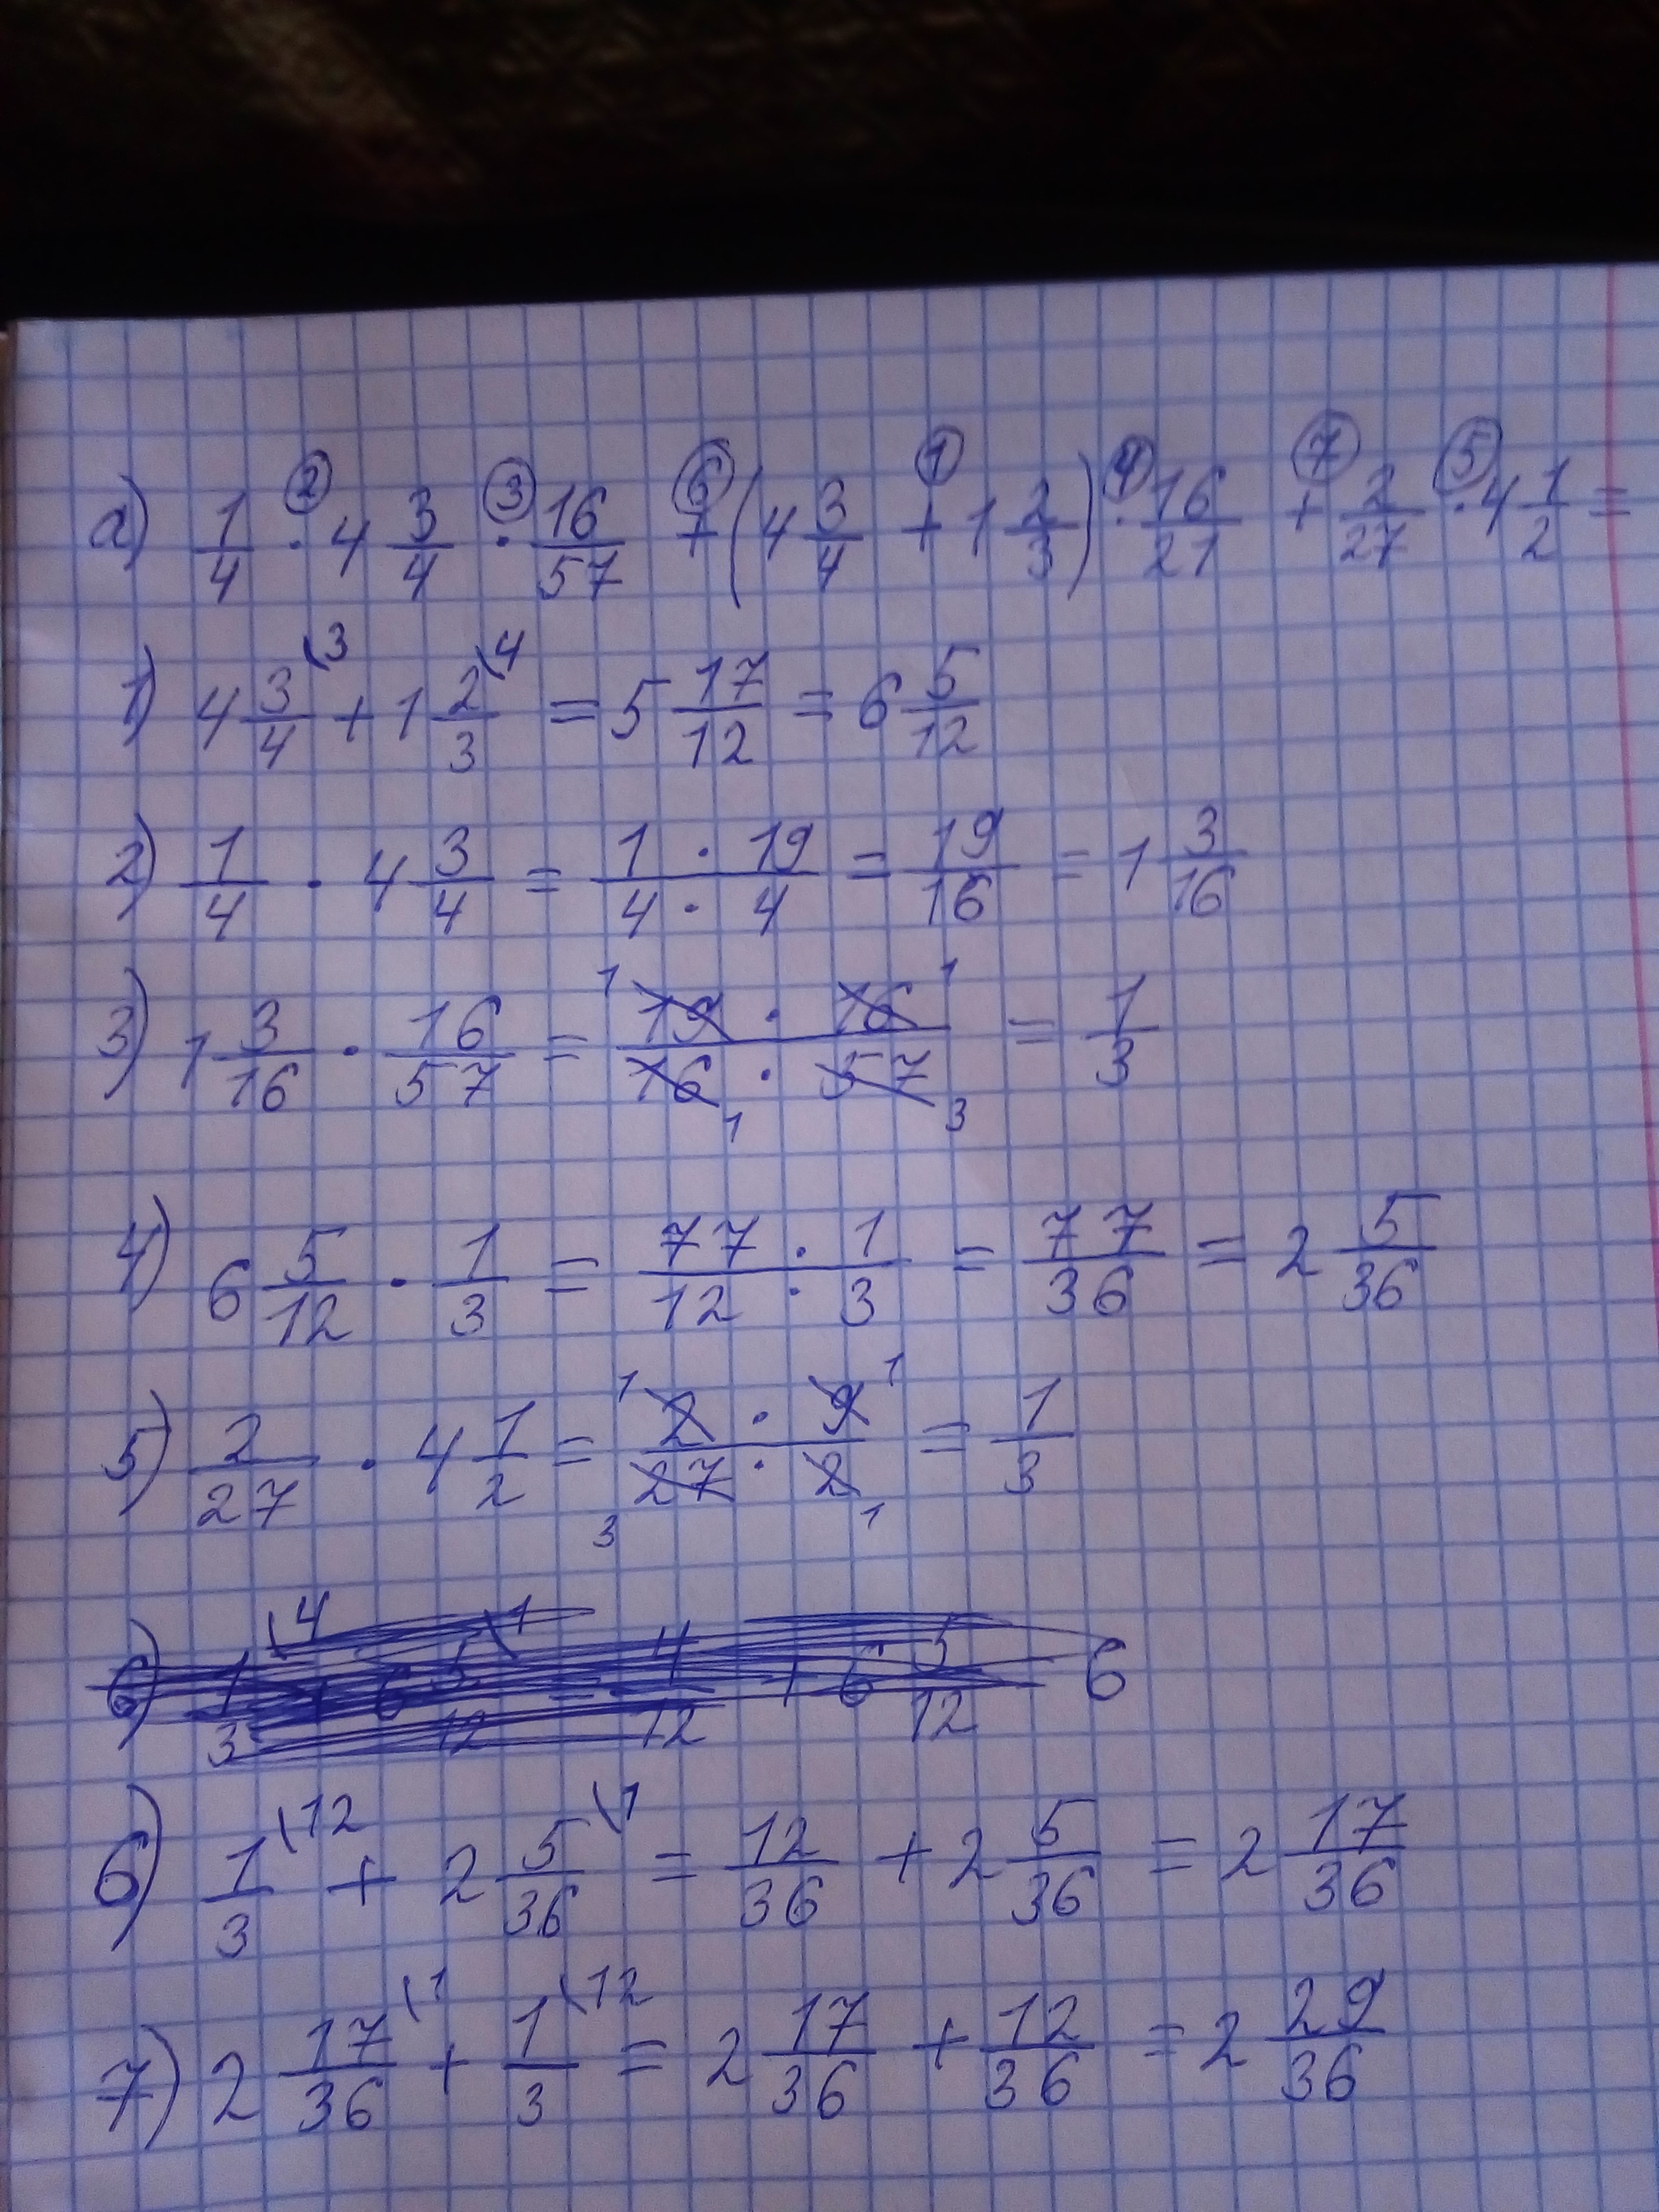 а) 1/4 · 4 3/4 · 16/57 + (4 3/4 + 1 2/3) · 16/21 + 2/27 · 4 1/2 =
② ③ ⑥ ① ④ ⑦ ⑤
1) 4 3/4 \3 + 1 2/3 \4 = 5 17/12 = 6 5/12
2) 1/4 · 4 3/4 = 1 · 19 / 4 · 4 = 19/16 = 1 3/16
3) 1 3/16 · 16/57 = 19 · 16 / 16 · 57 = 1/3
1 1 1 3
4) 6 5/12 · 1/3 = 77 · 1 / 12 · 3 = 77/36 = 2 5/36
5) 2/27 · 4 1/2 = 2 · 9 / 27 · 2 = 1/3
1 1 3 1
6) 1/3 \4 + 6 5/12 \1 = 4/12 + 6 5/12 = 6
6) 1/3 \12 + 2 5/36 \1 = 12/36 + 2 5/36 = 2 17/36
7) 2 17/36 \1 + 1/3 \12 = 2 17/36 + 12/36 = 2 29/36